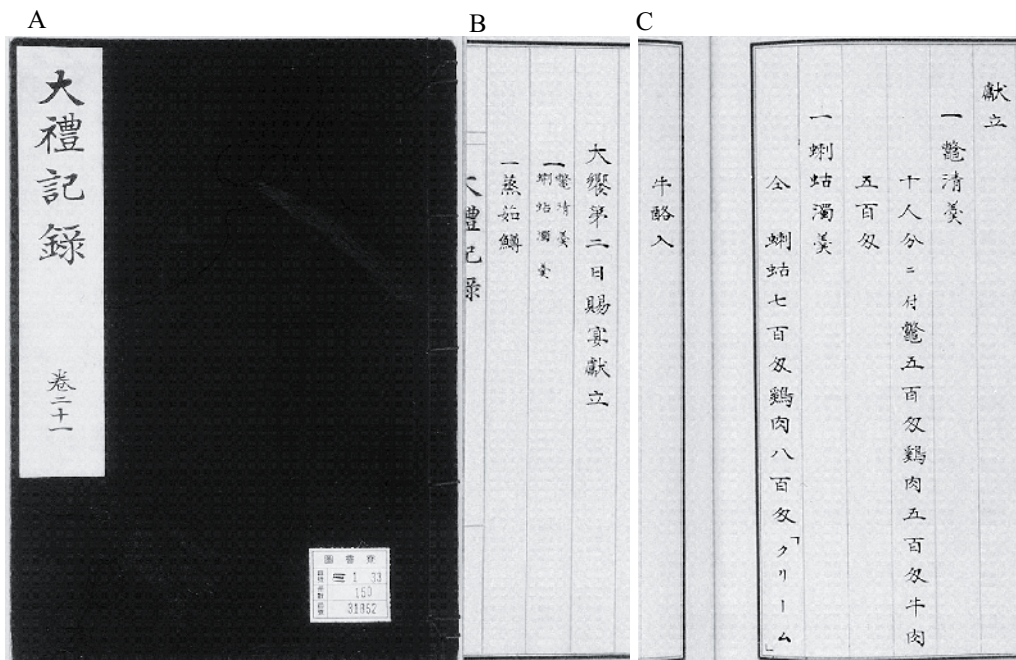 A
大禮記錄
卷二十一
圖書寮
1 33
150
31852
B
大饗第二日賜宴獻立
一鼈清羹
蜊蛄濁羹
一蒸茹鱒
大禮記録
C
獻立
一鼈清羹
十人分ニ付鼈五百匁鷄肉五百匁牛肉
五百匁
一蜊蛄濁羹
仝 蜊蛄七百匁鷄肉八百匁「クリーム」
牛酪入